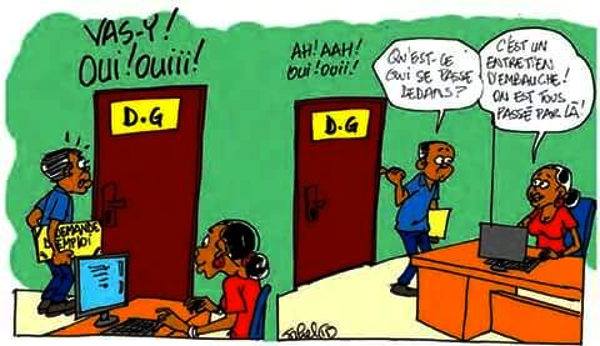 VAS-Y!
OUI! OUIII!
D.G
DEMANDE
D'EMPLOI
AH! AAH!
OUI! OUII!
D.G
QU'EST-CE
QUI SE PASSE
DEDANS?
C'EST UN
ENTRETIEN
D'EMBAUCHE!
ON EST TOUS
PASSÉ PAR LÀ!